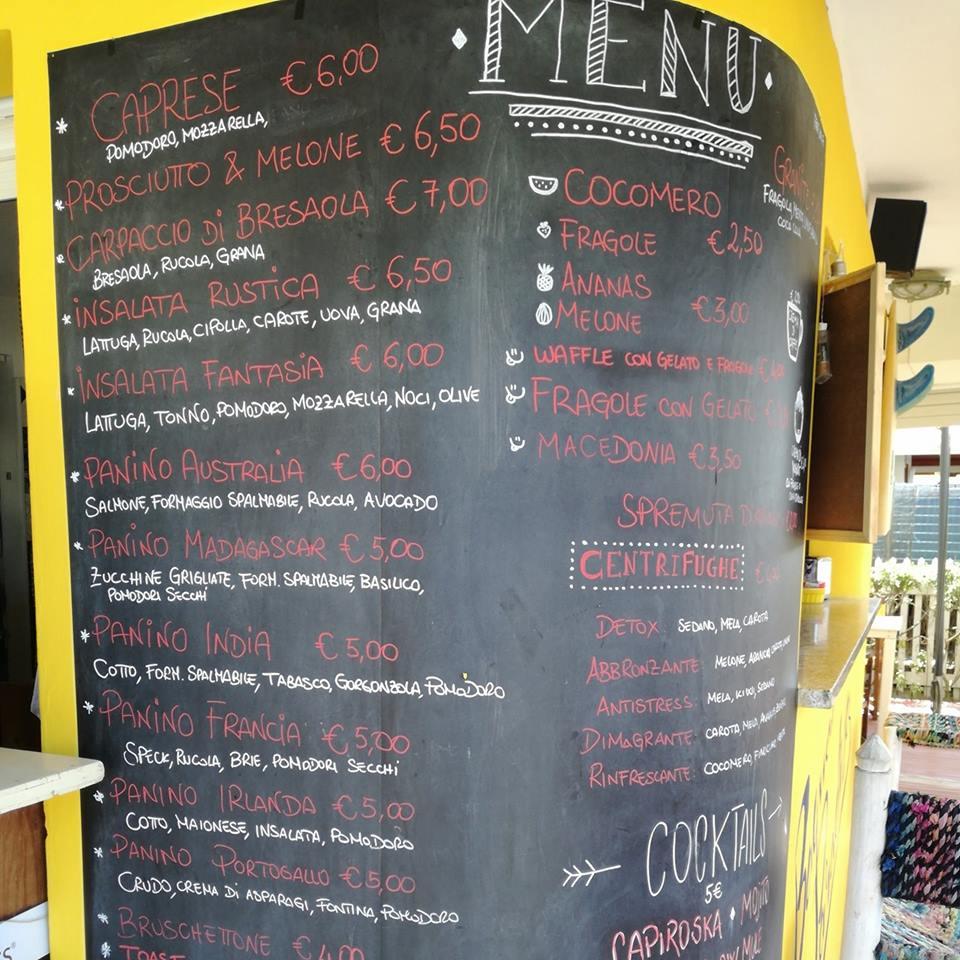 MENU
* CAPRESE € 6,00
POMODORO, MOZZARELLA,
* PROSCIUTTO & MELONE € 6,50
* CARPACCIO Di BRESAOLA € 7,00
BRESAOLA, RUCOLA, GRANA
* iNSALATA RUSTICA € 6,50
LATTUGA, RUCOLA, CIPOLLA, CAROTE, UOVA, GRANA
* iNSALATA FANTASIA € 6,00
LATTUGA, TONNO, POMODORO, MOZZARELLA, NOCI, OLIVE
* PANINO AUSTRALIA € 6,00
SALMONE, FORMAGGIO SPALMABILE, RUCOLA, AVOCADO
* PANINO MADAGASCAR € 5,00
ZUCCHINE GRIGLIATE, FORM. SPALMABILE, BASILICO,
POMODORI SECCHI
* PANINO INDIA € 5,00
COTTO, FORM. SPALMABILE, TABASCO, GORGONZOLA, POMODORO
* PANINO FRANCIA € 5,00
SPECK, RUCOLA, BRIE, POMODORI SECCHI
* PANINO IRLANDA € 5,00
COTTO, MAIONESE, INSALATA, POMODORO
* PANINO PORTOGALLO € 5,00
CRUDO, CREMA Di ASPARAGI, FONTINA, POMODORO
* BRUSCHETTONE € 4,00
TOAST
COCOMERO
FRAGOLE € 2,50
ANANAS
MELONE € 3,00
WAFFLE CON GELATO E FRAGOLE €
FRAGOLE CON GELATO €
MACEDONIA € 3,50
SPREMUTA
CENTRIFUGHE €
DETOX: SEDANO, MELA, CAROTA
ABBRONZANTE: MELONE,
ANTISTRESS: MELA, KIWI, SEDANO
DIMAGRANTE: CAROTA,
RINFRESCANTE: COCOMERO,
COCKTAILS
5€
CAPIROSKA • MOJITO
MULE
FRAGOLA,
COCA COLA